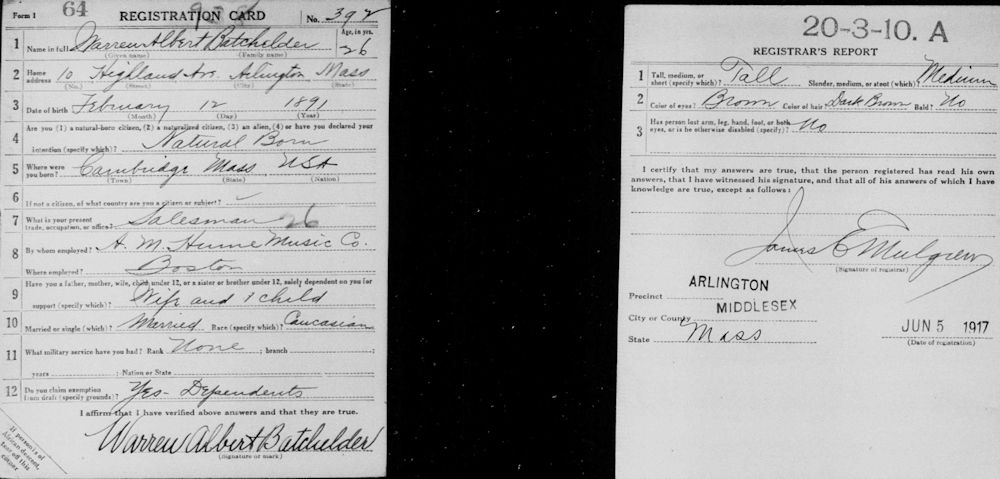 Form 1 64 REGISTRATION CARD No. 392
1 Name in full Warren Albert Batchelder Age, in yrs. 26
(Given name) (Family name)
2 Home address 10 Highland Ave. Arlington Mass
(No.) (Street) (City) (State)
3 Date of birth February 12 1891
(Month) (Day) (Year)
4 Are you (1) a natural-born citizen, (2) a naturalized citizen, (3) an alien, (4) or have you declared your
intention (specify which)? Natural Born
5 Where were you born? Cambridge Mass USA
(Town) (State) (Nation)
6 If not a citizen, of what country are you a citizen or subject?
7 What is your present trade, occupation, or office? Salesman 26
8 By whom employed? A. M. Hume Music Co.
Where employed? Boston
9 Have you a father, mother, wife, child under 12, or a sister or brother under 12, solely dependent on you for
support (specify which)? Wife and 1 child
10 Married or single (which)? Married Race (specify which)? Caucasian
11 What military service have you had? Rank None ; branch ;
years ; Nation or State
12 Do you claim exemption from draft (specify grounds)? Yes - Dependents
I affirm that I have verified above answers and that they are true.
Warren Albert Batchelder
(Signature or mark)
If person is of
African descent,
tear off this
corner
20-3-10. A
REGISTRAR'S REPORT
1 Tall, medium, or short (specify which)? Tall Slender, medium, or stout (which)? Medium
2 Color of eyes? Brown Color of hair Dark Brown Bald? No
3 Has person lost arm, leg, hand, foot, or both
eyes, or is he otherwise disabled (specify)? No
I certify that my answers are true, that the person registered has read his own
answers, that I have witnessed his signature, and that all of his answers of which I have
knowledge are true, except as follows:
James E Mulgrew
(Signature of registrar)
Precinct ARLINGTON
City or County MIDDLESEX
State Mass
JUN 5 1917
(Date of registration)